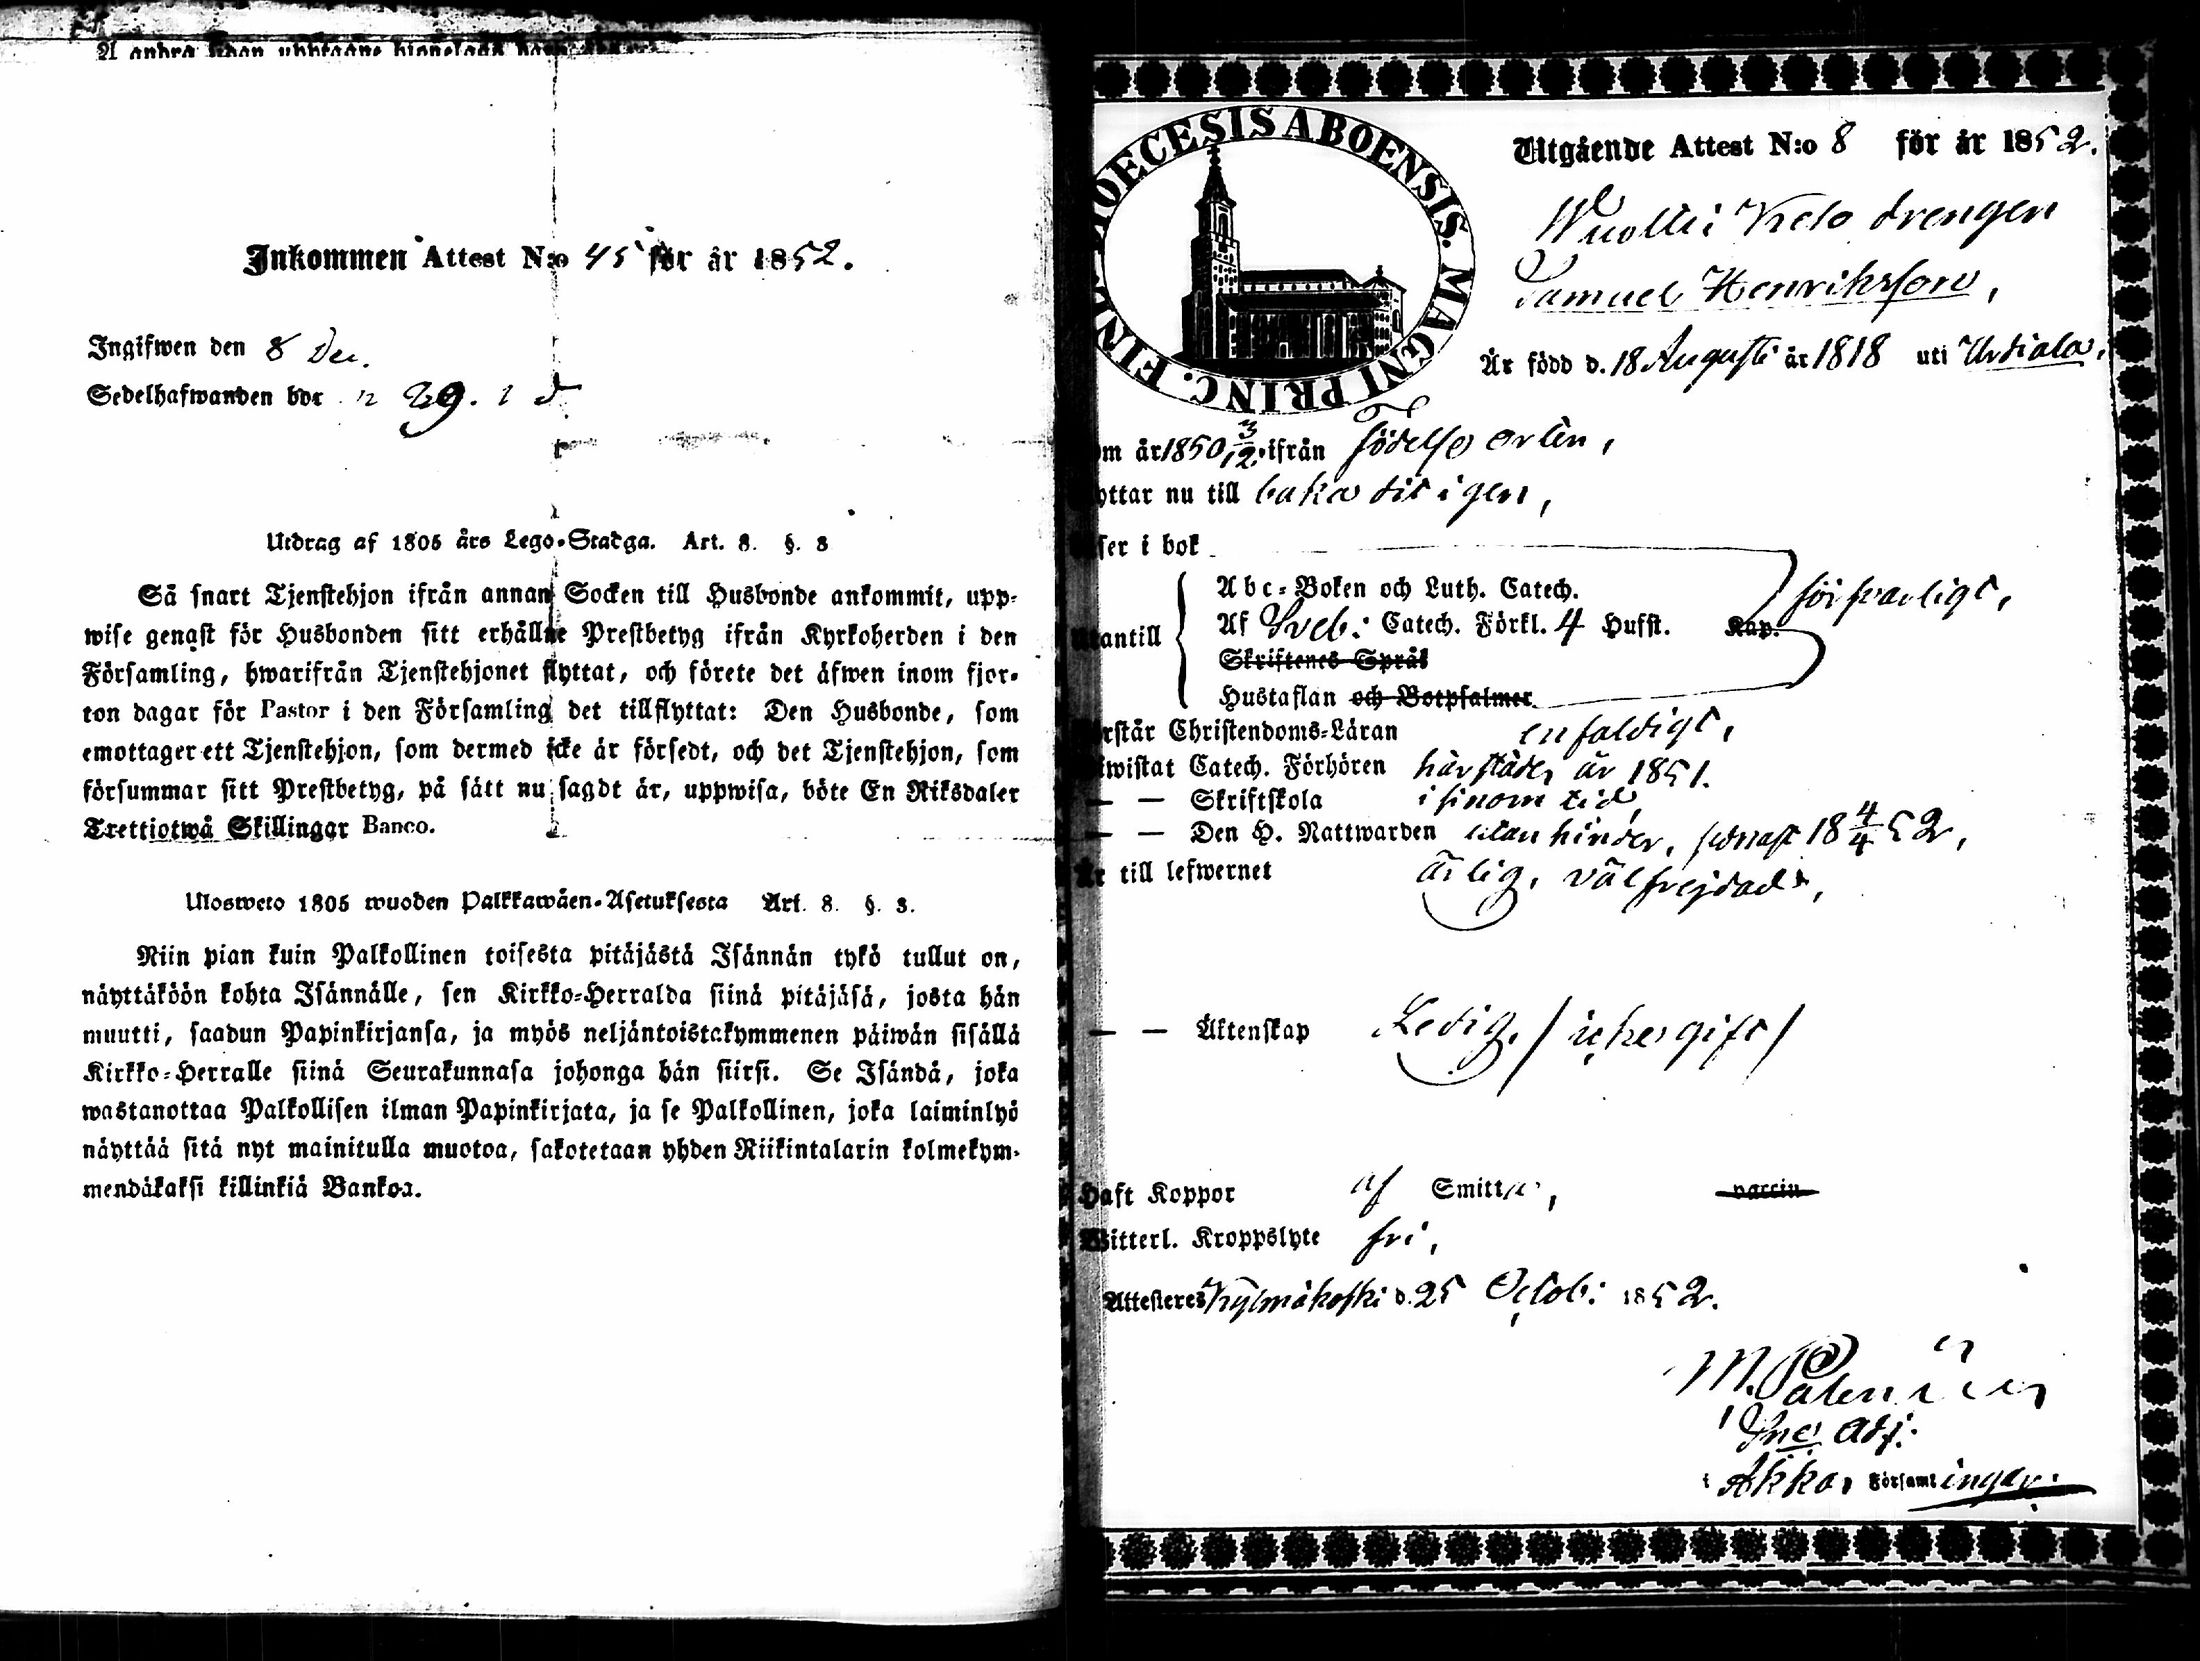 Inkommen Attest N:o 45 för år 1852.
Ingifwen den 8 Dec.
Sedelhafwanden bor 29.
Utdrag af 1805 års Lego-Stadga. Art. 8. §. 3
Så snart Tjenstehjon ifrån annan Socken till Husbonde ankommit, upp-
wise genast för Husbonden sitt erhållne Prestbetyg ifrån Kyrkoherden i den
Församling, hwarifrån Tjenstehjonet flyttat, och förete det äfwen inom fjor-
ton dagar för Pastor i den Församling det tillflyttat: Den Husbonde, som
emottager ett Tjenstehjon, som dermed icke är försedt, och det Tjenstehjon, som
försummar sitt Prestbetyg, på sätt nu sagdt är, uppwisa, böte En Riksdaler
Trettiotwå Skillingar Banco.
Ulosweto 1805 wuoden Palkkawäen-Asetuksesta Art. 8. §. 3.
Niin pian kuin Palkollinen toisesta pitäjästä Isännän tykö tullut on,
näyttäköön kohta Isännälle, sen Kirkko-Herralda siinä pitäjäsä, josta hän
muutti, saadun Papinkirjansa, ja myös neljäntoistakymmenen päiwän sisällä
Kirkko-Herralle siinä Seurakunnasa johonga hän siirsi. Se Isändä, joka
wastanottaa Palkollisen ilman Papinkirjata, ja se Palkollinen, joka laiminlyö
näyttää sitä nyt mainitulla muotoa, sakotetaan yhden Riikintalarin kolmekym-
mendäkaksi killinkiä Bankoa.
DIOECESIS ABOENSIS. MAGNI PRINC. FINL.
Utgående Attest N:o 8 för år 1852.
drengen
Samuel Henriksson,
Är född d. 18 Augusti år 1818 uti Urdiala,
om år 1850 3/12 ifrån födelse orten,
yttar nu till baka dit igen,
ser i bok
Abc-Boken och Luth. Catech. försvarligt,
antill Af Sveb: Catech. Förkl. 4 Hufst. Kap.
Skriftenes Språk
Hustaflan och Botpsalmer
rstår Christendoms-Läran enfaldigt,
wistat Catech. Förhören härstädes år 1851.
— — Skriftskola i sinom tid,
— — Den H. Nattwarden utan hinder, sednast 18 4/4 52,
Är till lefwernet ärlig, välfrejdad,
— — Äktenskap Ledig, / icke gift /
Haft Koppor af Smitta, vaccin
Witterl. Kroppslyte fri,
Attesteres Kylmäkoski d. 25 Octob: 1852.
M.
Adj:
i Akka, Församlingar.